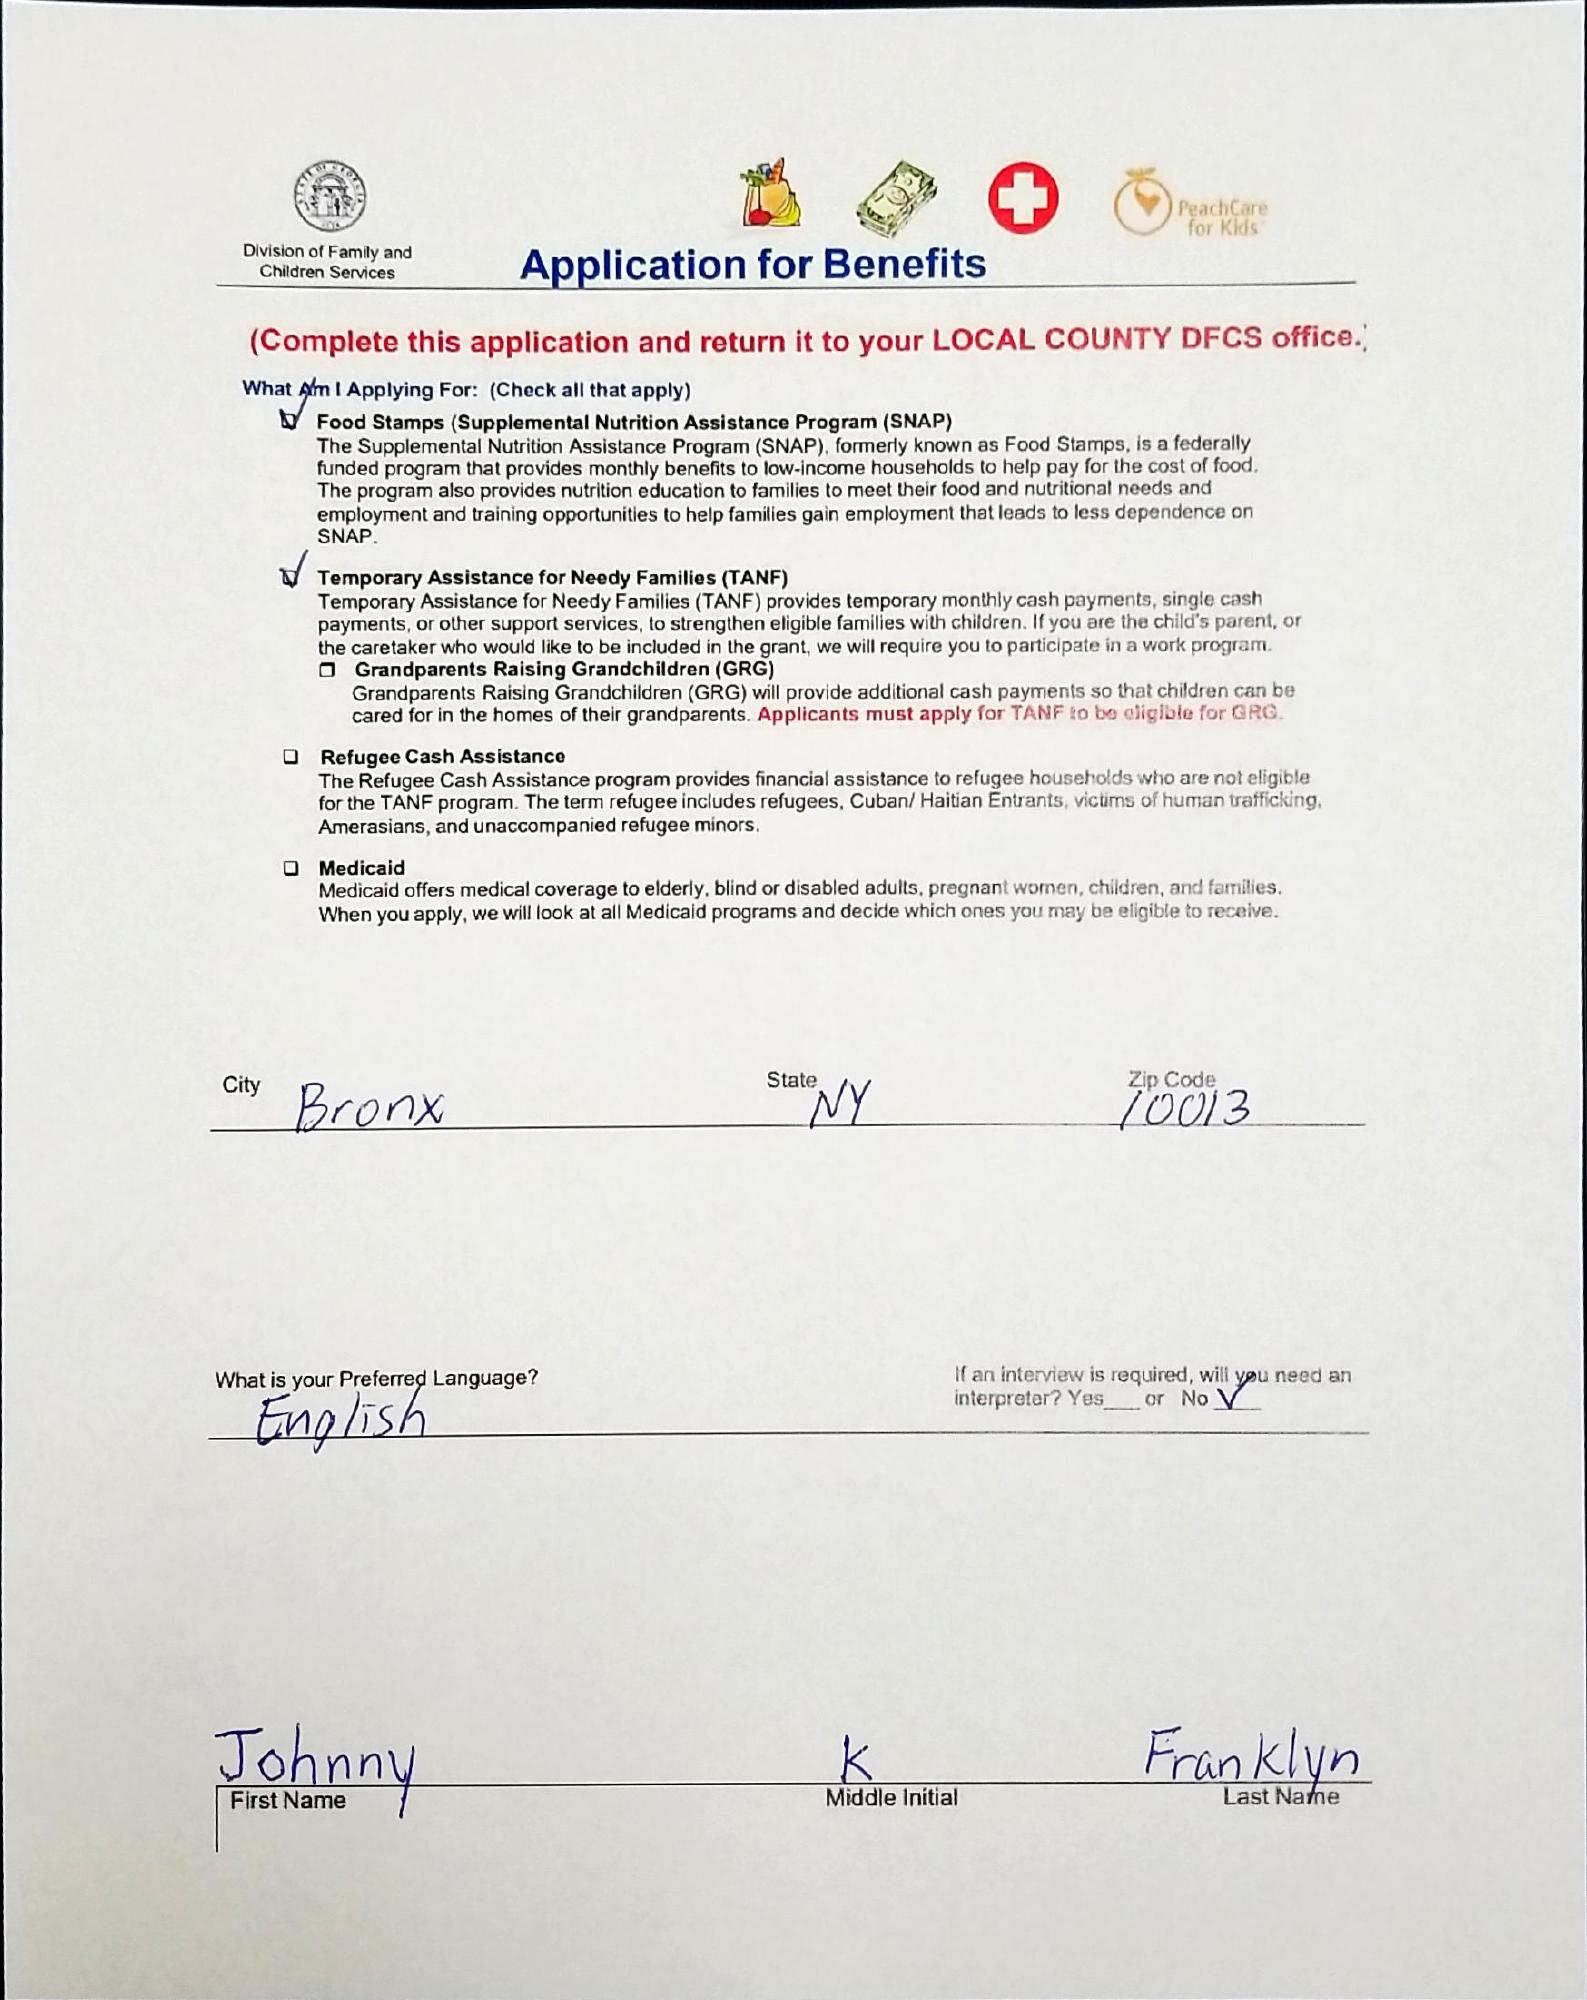 STATE OF GEORGIA
1776
PeachCare
for Kids
Division of Family and
Children Services
Application for Benefits
(Complete this application and return it to your LOCAL COUNTY DFCS office.)
What Am I Applying For: (Check all that apply)
Food Stamps (Supplemental Nutrition Assistance Program (SNAP)
The Supplemental Nutrition Assistance Program (SNAP), formerly known as Food Stamps, is a federally
funded program that provides monthly benefits to low-income households to help pay for the cost of food.
The program also provides nutrition education to families to meet their food and nutritional needs and
employment and training opportunities to help families gain employment that leads to less dependence on
SNAP.
Temporary Assistance for Needy Families (TANF)
Temporary Assistance for Needy Families (TANF) provides temporary monthly cash payments, single cash
payments, or other support services, to strengthen eligible families with children. If you are the child's parent, or
the caretaker who would like to be included in the grant, we will require you to participate in a work program.
Grandparents Raising Grandchildren (GRG)
Grandparents Raising Grandchildren (GRG) will provide additional cash payments so that children can be
cared for in the homes of their grandparents. Applicants must apply for TANF to be eligible for GRG.
Refugee Cash Assistance
The Refugee Cash Assistance program provides financial assistance to refugee households who are not eligible
for the TANF program. The term refugee includes refugees, Cuban/ Haitian Entrants, victims of human trafficking,
Amerasians, and unaccompanied refugee minors.
Medicaid
Medicaid offers medical coverage to elderly, blind or disabled adults, pregnant women, children, and families.
When you apply, we will look at all Medicaid programs and decide which ones you may be eligible to receive.
City Bronx State NY Zip Code 10013
What is your Preferred Language? If an interview is required, will you need an
English interpreter? Yes___ or No ✓
Johnny K Franklyn
First Name Middle Initial Last Name